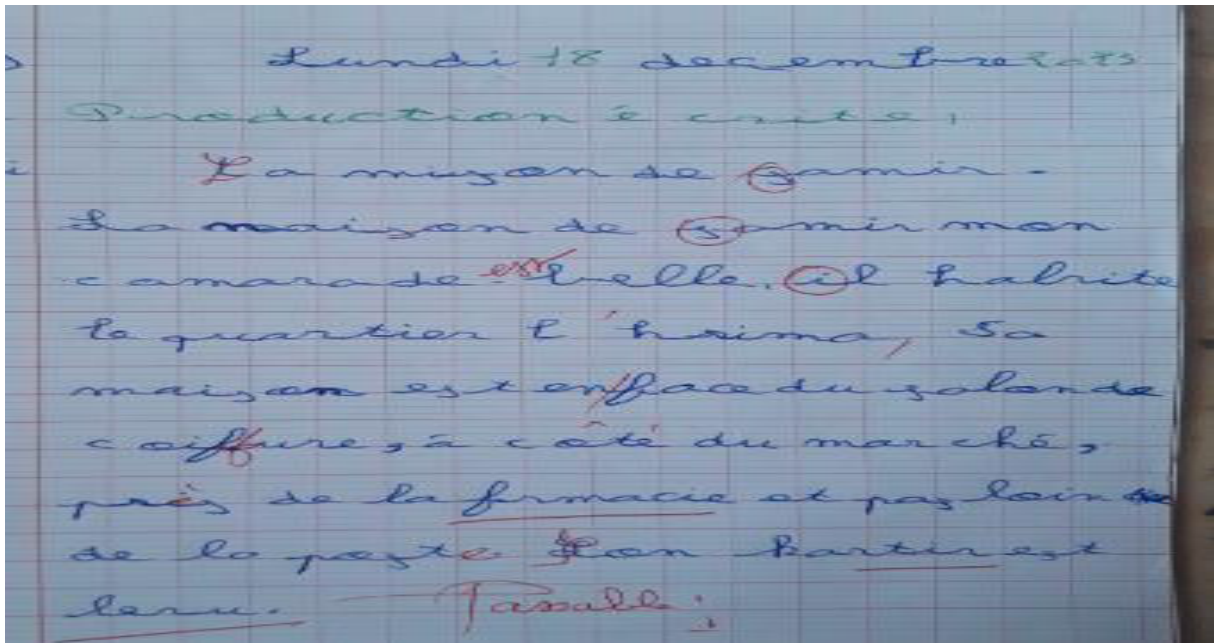 Lundi 18 decembre 2023
Production écrite,
La muison de samir.
La maison de samir mon
camarade est belle. il habite
le quartier l'hrima, Sa
maison est en/face du salon de
coiffure, à côté du marché,
près de la frmacie et pas loin de
de la poste Son kartir est
Passable.